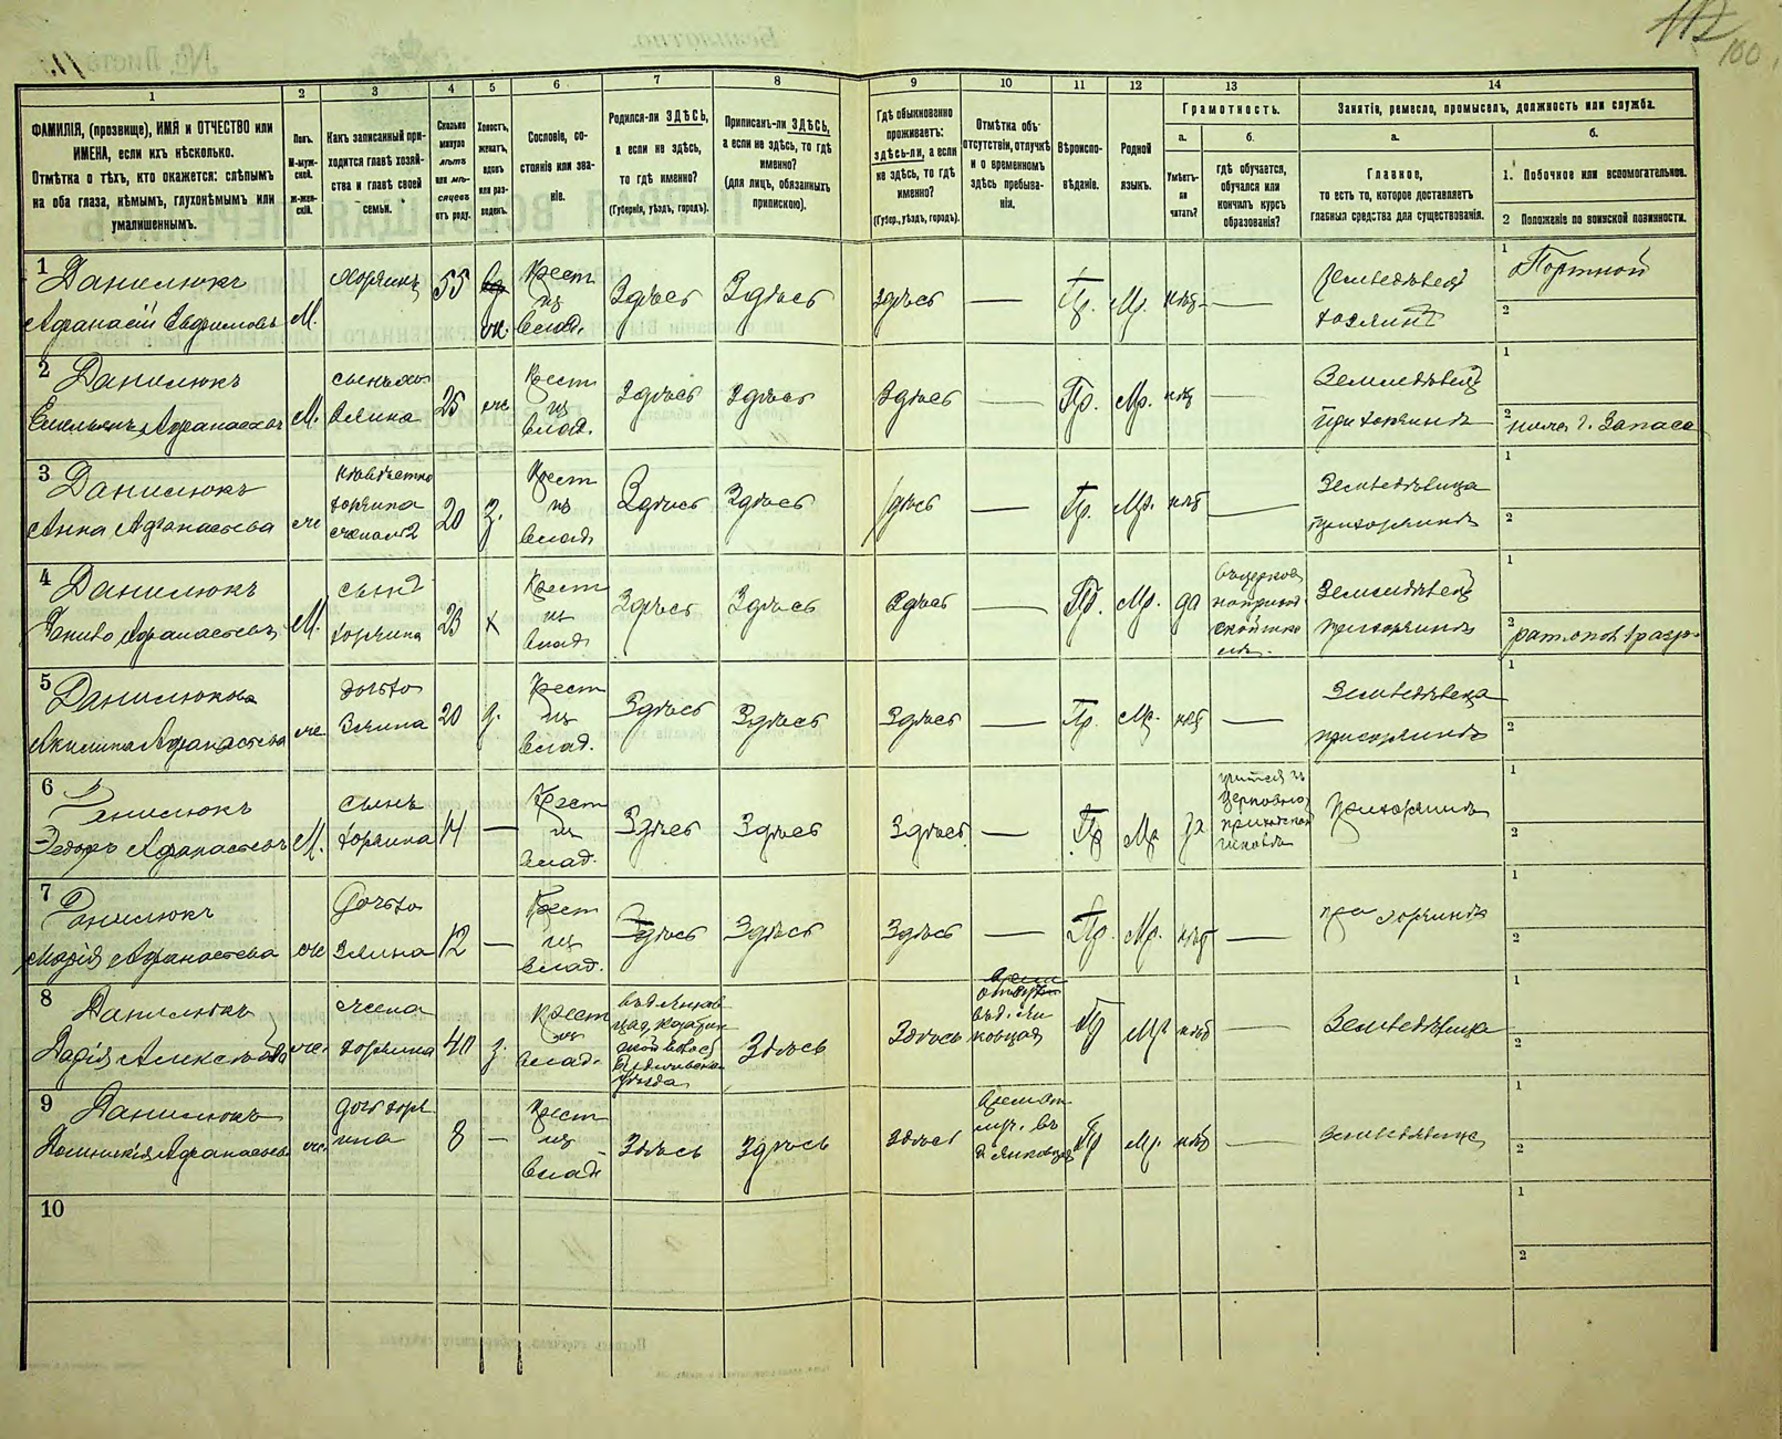 112
100
1
2
3
4
5
6
7
8
9
10
11
12
13
14
ФАМИЛІЯ, (прозвище), ИМЯ и ОТЧЕСТВО или
ИМЕНА, если ихъ нѣсколько.
Отмѣтка о тѣхъ, кто окажется: слѣпымъ
на оба глаза, нѣмымъ, глухонѣмымъ или
умалишеннымъ.
Полъ.
М-муж-
ской.
Ж-жен-
скій.
Какъ записанный при-
ходится главѣ хозяй-
ства и главѣ своей
семьи.
Сколько
минуло
лѣтъ
или мѣ-
сяцевъ
отъ роду.
Холостъ,
женатъ,
вдовъ
или раз-
веденъ.
Сословіе, со-
стояніе или зва-
ніе.
Родился-ли ЗДѢСЬ,
а если не здѣсь,
то гдѣ именно?
(Губернія, уѣздъ, городъ).
Приписанъ-ли ЗДѢСЬ,
а если не здѣсь, то гдѣ
именно?
(для лицъ, обязанныхъ
припискою).
Гдѣ обыкновенно
проживаетъ:
здѣсь-ли, а если
не здѣсь, то гдѣ
именно?
(Губер., уѣздъ, городъ).
Отмѣтка объ
отсутствіи, отлучкѣ
и о временномъ
здѣсь пребыва-
ніи.
Вѣроиспо-
вѣданіе.
Родной
языкъ.
Грамотность.
а.
Умѣетъ-
ли
читать?
б.
гдѣ обучается,
обучался или
кончилъ курсъ
образованія?
Занятіе, ремесло, промыселъ, должность или служба.
а.
Главное,
то есть то, которое доставляетъ
главныя средства для существованія.
б.
1. Побочное или вспомогательное.
2 Положеніе по воинской повинности.
1
Данилюкъ
Афанасій Ефримовъ
М.
хозяинъ
55
же.
Крест
из
влад.
Здѣсь
Здѣсь
здѣсь
—
Пр.
Мр.
нѣт
—
Земледѣлец
хозяинъ
1
Портной
2
2
Данилюкъ
Емельянъ Афанасьевъ
М.
сынъ хо
зяина
25
же
Крест
из
влад.
Здѣсь
Здѣсь
Здѣсь
—
Пр.
Мр.
нѣт
—
Земледѣлец
при хозяинѣ
1
2
Запаса
3
Данилюкъ
Анна Афанасьева
же
хозяина
20
З.
Крест
из
влад
Здѣсь
Здѣсь
здѣсь
—
Пр.
Мр.
нѣт
—
Земледѣлица
при хозяинѣ
1
2
4
Данилюкъ
Афанасьевъ
М.
сынъ
хозяина
23
х
Крест
из
влад
Здѣсь
Здѣсь
Здѣсь
—
Пр.
Мр.
да
въ церков
Земледѣлец
при хозяинѣ
1
2
ратникъ 1 разр.
5
Данилюкова
Акилина Афанасьева
же
дочь хо
зяина
20
д.
Крест
из
влад.
Здѣсь
Здѣсь
Здѣсь
—
Пр.
Мр.
нѣт
—
Земледѣлица
при хозяинѣ
1
2
6
Данилюкъ
Федоръ Афанасьевъ
М.
сынъ
хозяина
14
—
Крест
из
влад.
Здѣсь
Здѣсь
Здѣсь
—
Пр
Мр
да
учится въ
церковно
приходской
школѣ
при хозяинѣ
1
2
7
Данилюкъ
Марія Афанасьева
же
дочь хо
зяина
12
—
Крест
из
влад.
Здѣсь
Здѣсь
Здѣсь
—
Пр.
Мр.
нѣт
—
при хозяинѣ
1
2
8
Данилюкъ
Дарія Алексѣева
же.
жена
хозяина
40
з.
Крест
из
влад.
уѣзда
Здѣсь
Здѣсь
Пр
Мр
нѣт
—
Земледѣлица
1
2
9
Данилюкъ
Афанасьева
же.
дочь хозя
ина
8
—
Крест
из
влад
Здѣсь
Здѣсь
Здѣсь
Пр
Мр.
нѣт
—
Земледѣлица
1
2
10
1
2